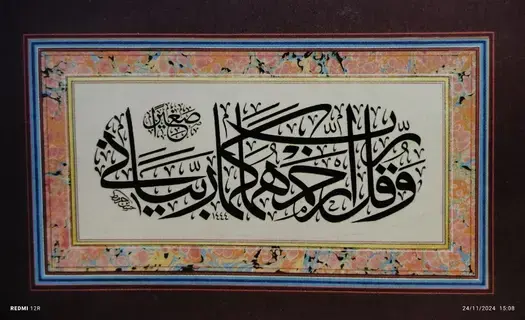 وَقُلْ رَبِّ ارْحَمْهُمَا كَمَا رَبَّيَانِي
صَغِيرًا
١٤٤٤
REDMI 12R
24/11/2024 15:08